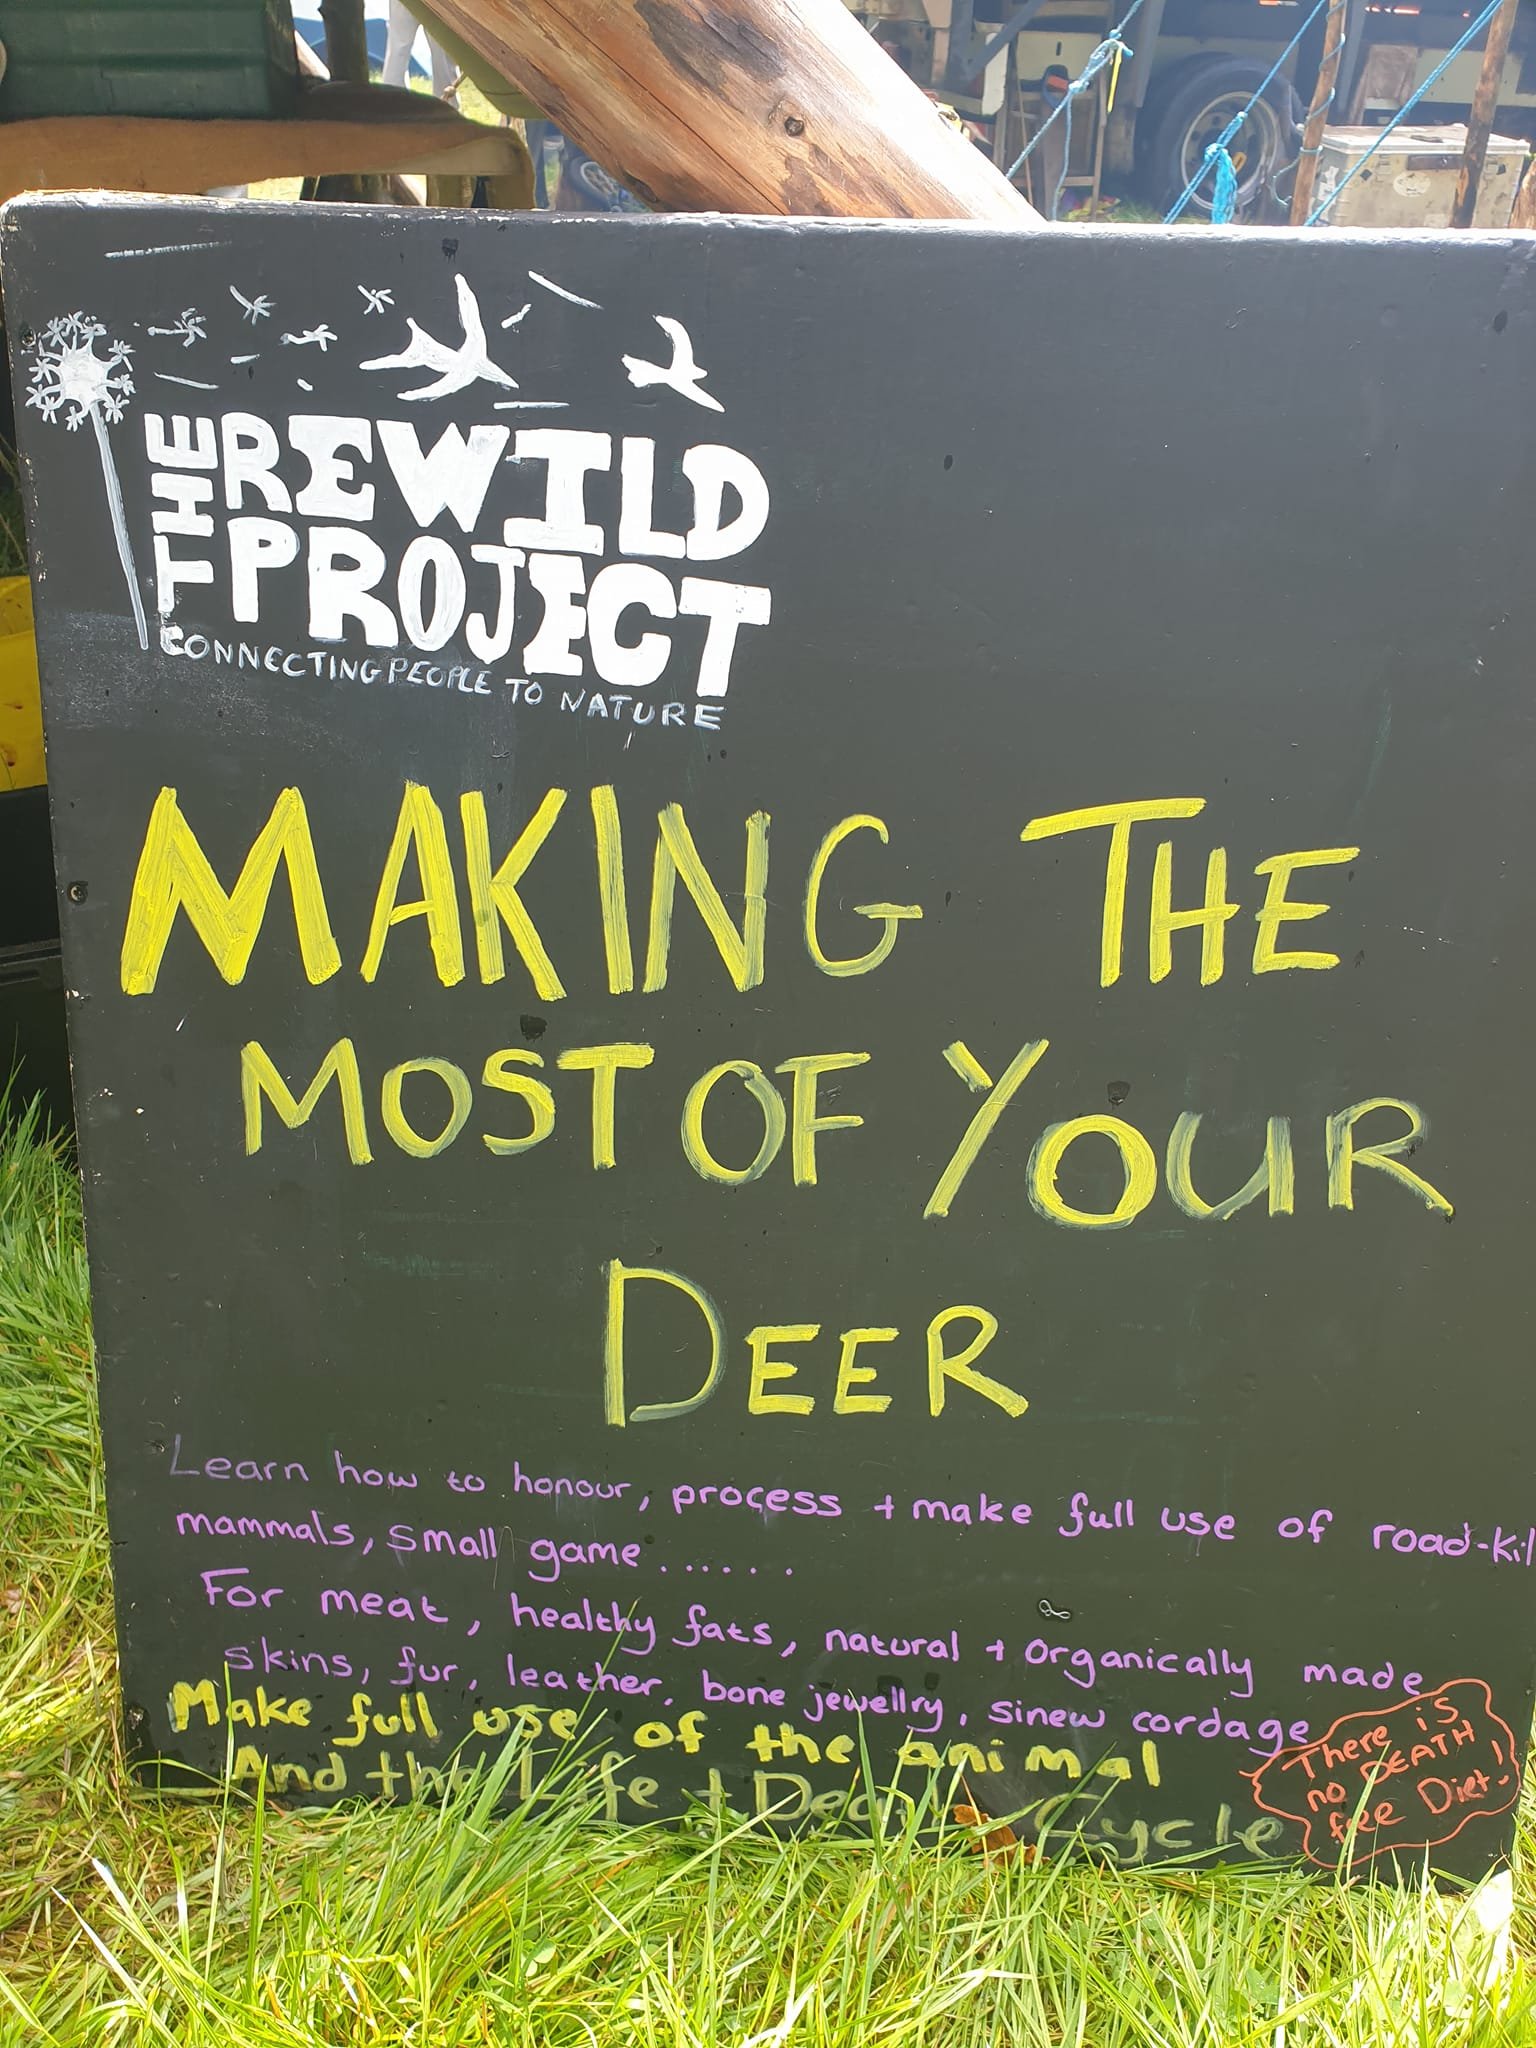 THE REWILD
PROJECT
CONNECTING PEOPLE TO NATURE
MAKING THE
MOST OF YOUR
DEER
Learn how to honour, process + make full use of road-kil
mammals, small game.......
For meat, healthy fats, natural + organically made
skins, fur, leather, bone jewellry, sinew cordage
Make full use of the animal
And the Life + Death Cycle
There is
no DEATH
free Diet!